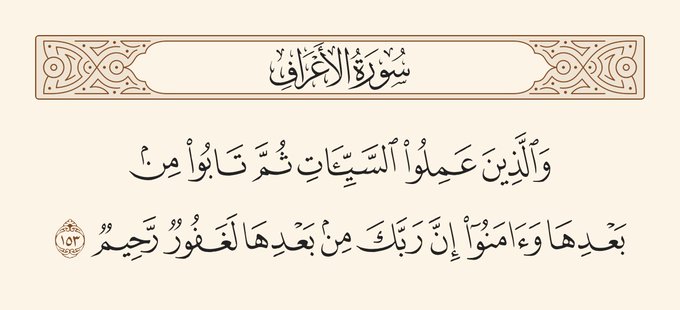 سُورَةُ الأَعْرَافِ
وَٱلَّذِينَ عَمِلُوا۟ ٱلسَّيِّـَٔاتِ ثُمَّ تَابُوا۟ مِنۢ
بَعْدِهَا وَءَامَنُوٓا۟ إِنَّ رَبَّكَ مِنۢ بَعْدِهَا لَغَفُورٌ رَّحِيمٌ ١٥٣